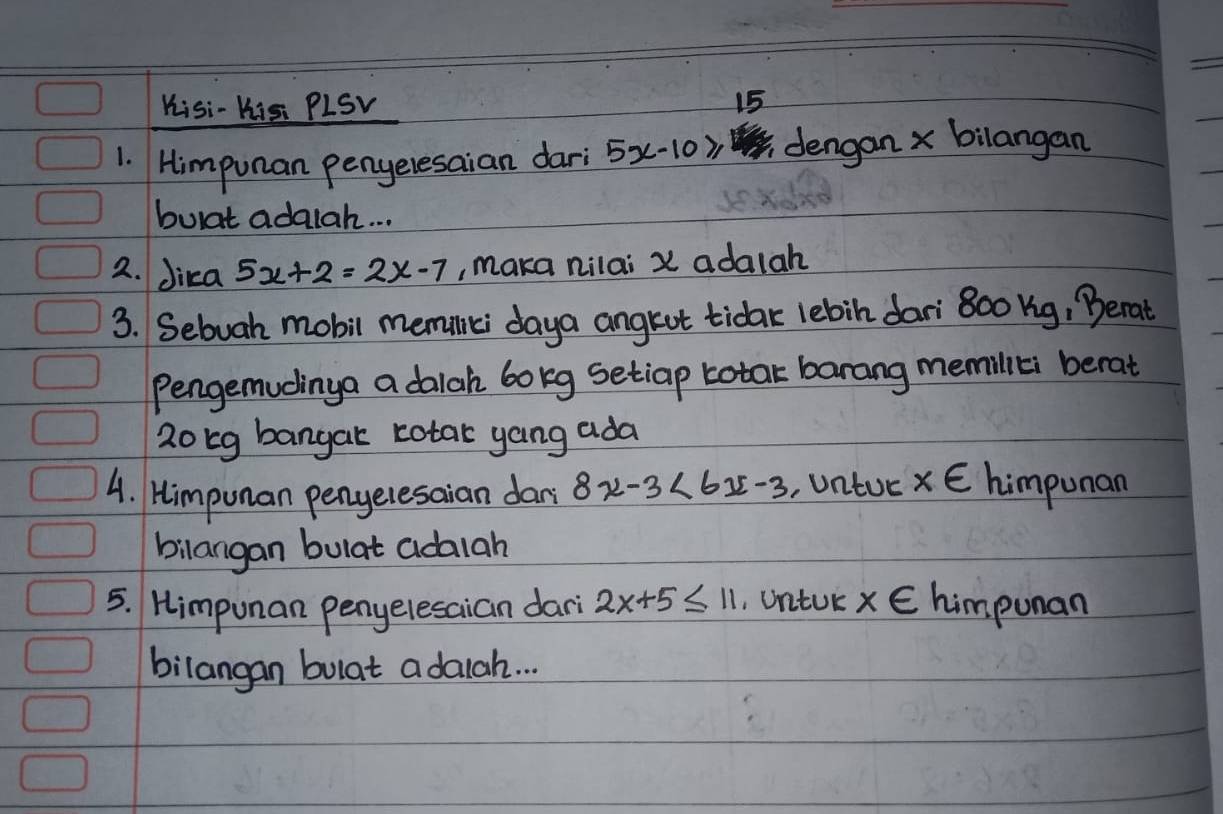 Kisi-Kisi PLSV
1. Himpunan penyelesaian dari 5x-10 ≥ 15 dengan x bilangan
bulat adalah...
2. Jika 5x+2 = 2x-7, maka nilai x adalah
3. Sebuah mobil memiliki daya angkut tidak lebih dari 800 kg, Berat
Pengemudinya adalah 60kg setiap kotak barang memiliki berat
20 kg bangak kotak yang ada
4. Himpunan penyelesaian dari 8x-3 < 6x-3, untuk x ∈ himpunan
bilangan bulat adalah
5. Himpunan penyelesaian dari 2x+5 ≤ 11, untuk x ∈ himpunan
bilangan bulat adalah...